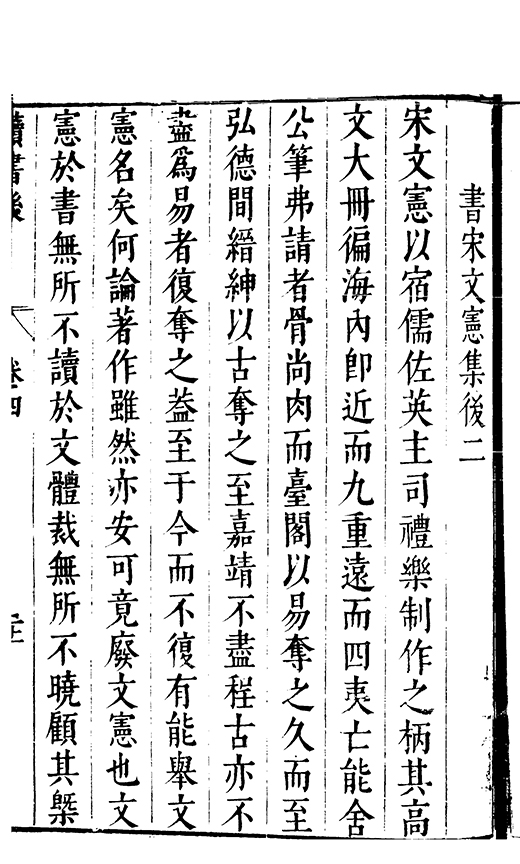 書宋文憲集後二
宋文憲以宿儒佐英主司禮樂制作之柄其高
文大冊徧海內卽近而九重遠而四夷亡能舍
公筆弗請者骨尚肉而臺閣以易奪之久而至
弘德間縉紳以古奪之至嘉靖不盡程古亦不
盡爲易者復奪之葢至于今而不復有能舉文
憲名矣何論著作雖然亦安可竟廢文憲也文
憲於書無所不讀於文體裁無所不曉顧其槩
讀書後 卷四